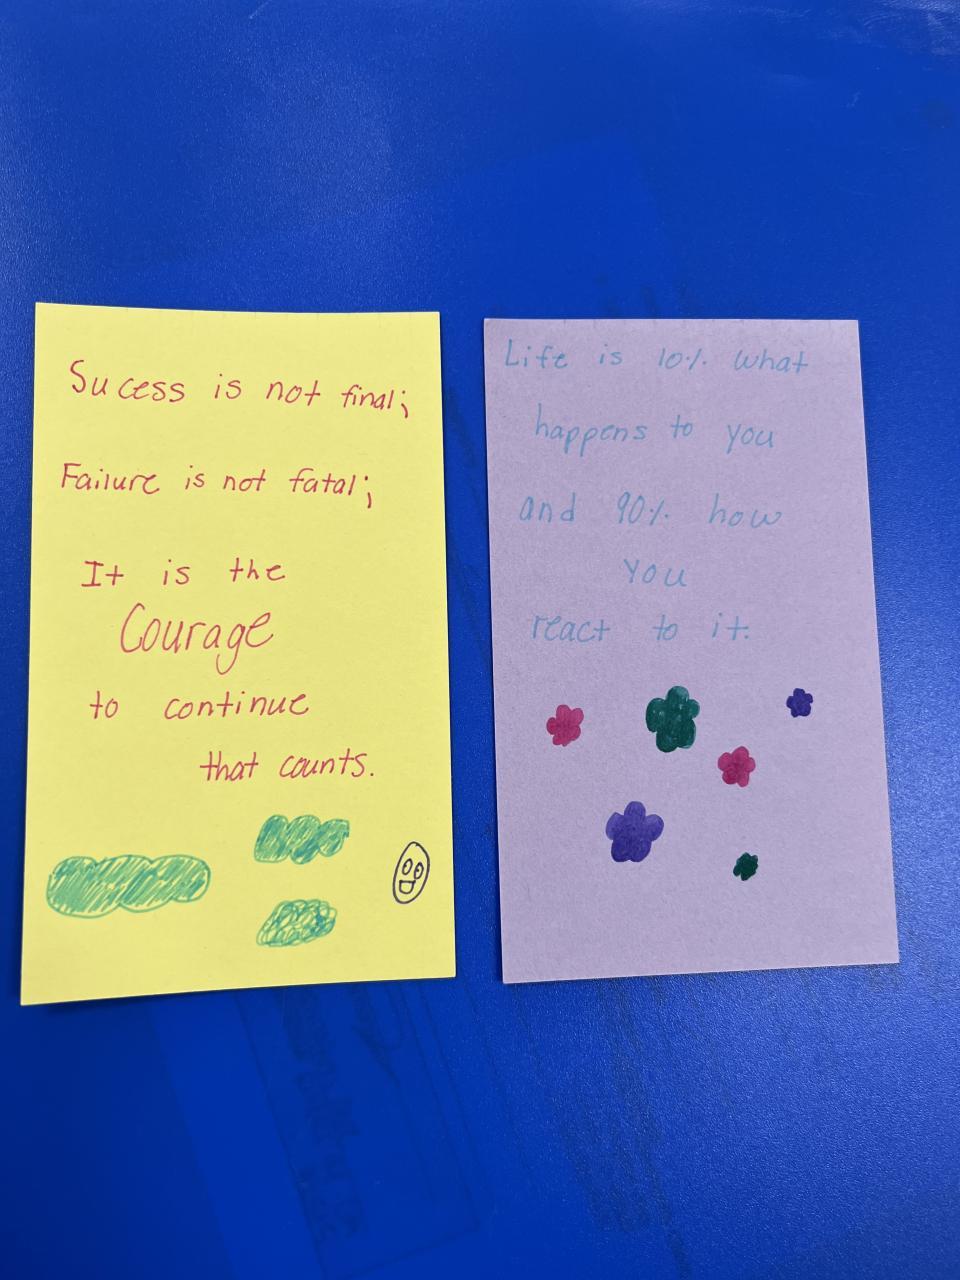 Sucess is not final;
Failure is not fatal;
It is the
Courage
to continue
that counts.
Life is 10% what
happens to you
and 90% how
you
react to it.